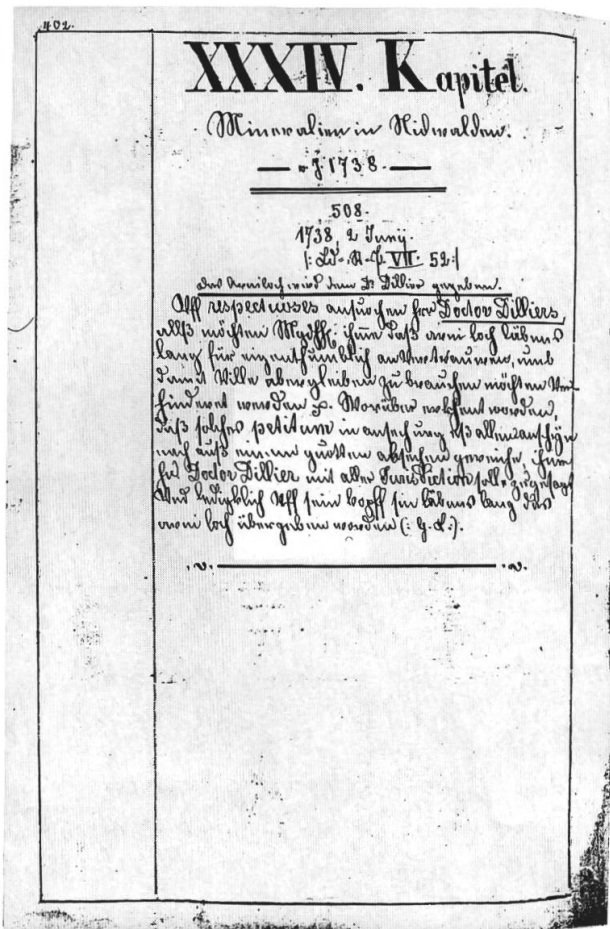 402.
XXXIV. Kapitel.
Mineralien in Nidwalden.
J. 1738.
508.
1738, 2 Junÿ.
VII. 52:|
das arniloch wird dem Dr Dillier gegeben.
Uff respectuoses ansuochen Hrr Doctor Dilliers,
allß möchten ihme daß arni loch läbens
lang für eigenthumblich anvertrauwen, und
damit Ville zu brauchen möchten Ver
hinderet werden Worüber erkhent worden,
daß solches petitum in ansechung eß allem anschyn
nach auß einem guotten absechen gereiche, ihme
Hr Doctor Dillier mit aller Jurisdiction solle zuogesagt
Und lediglich Uff sein kopff sin läbens lang das
arni loch übergeben worden (: G. L:).